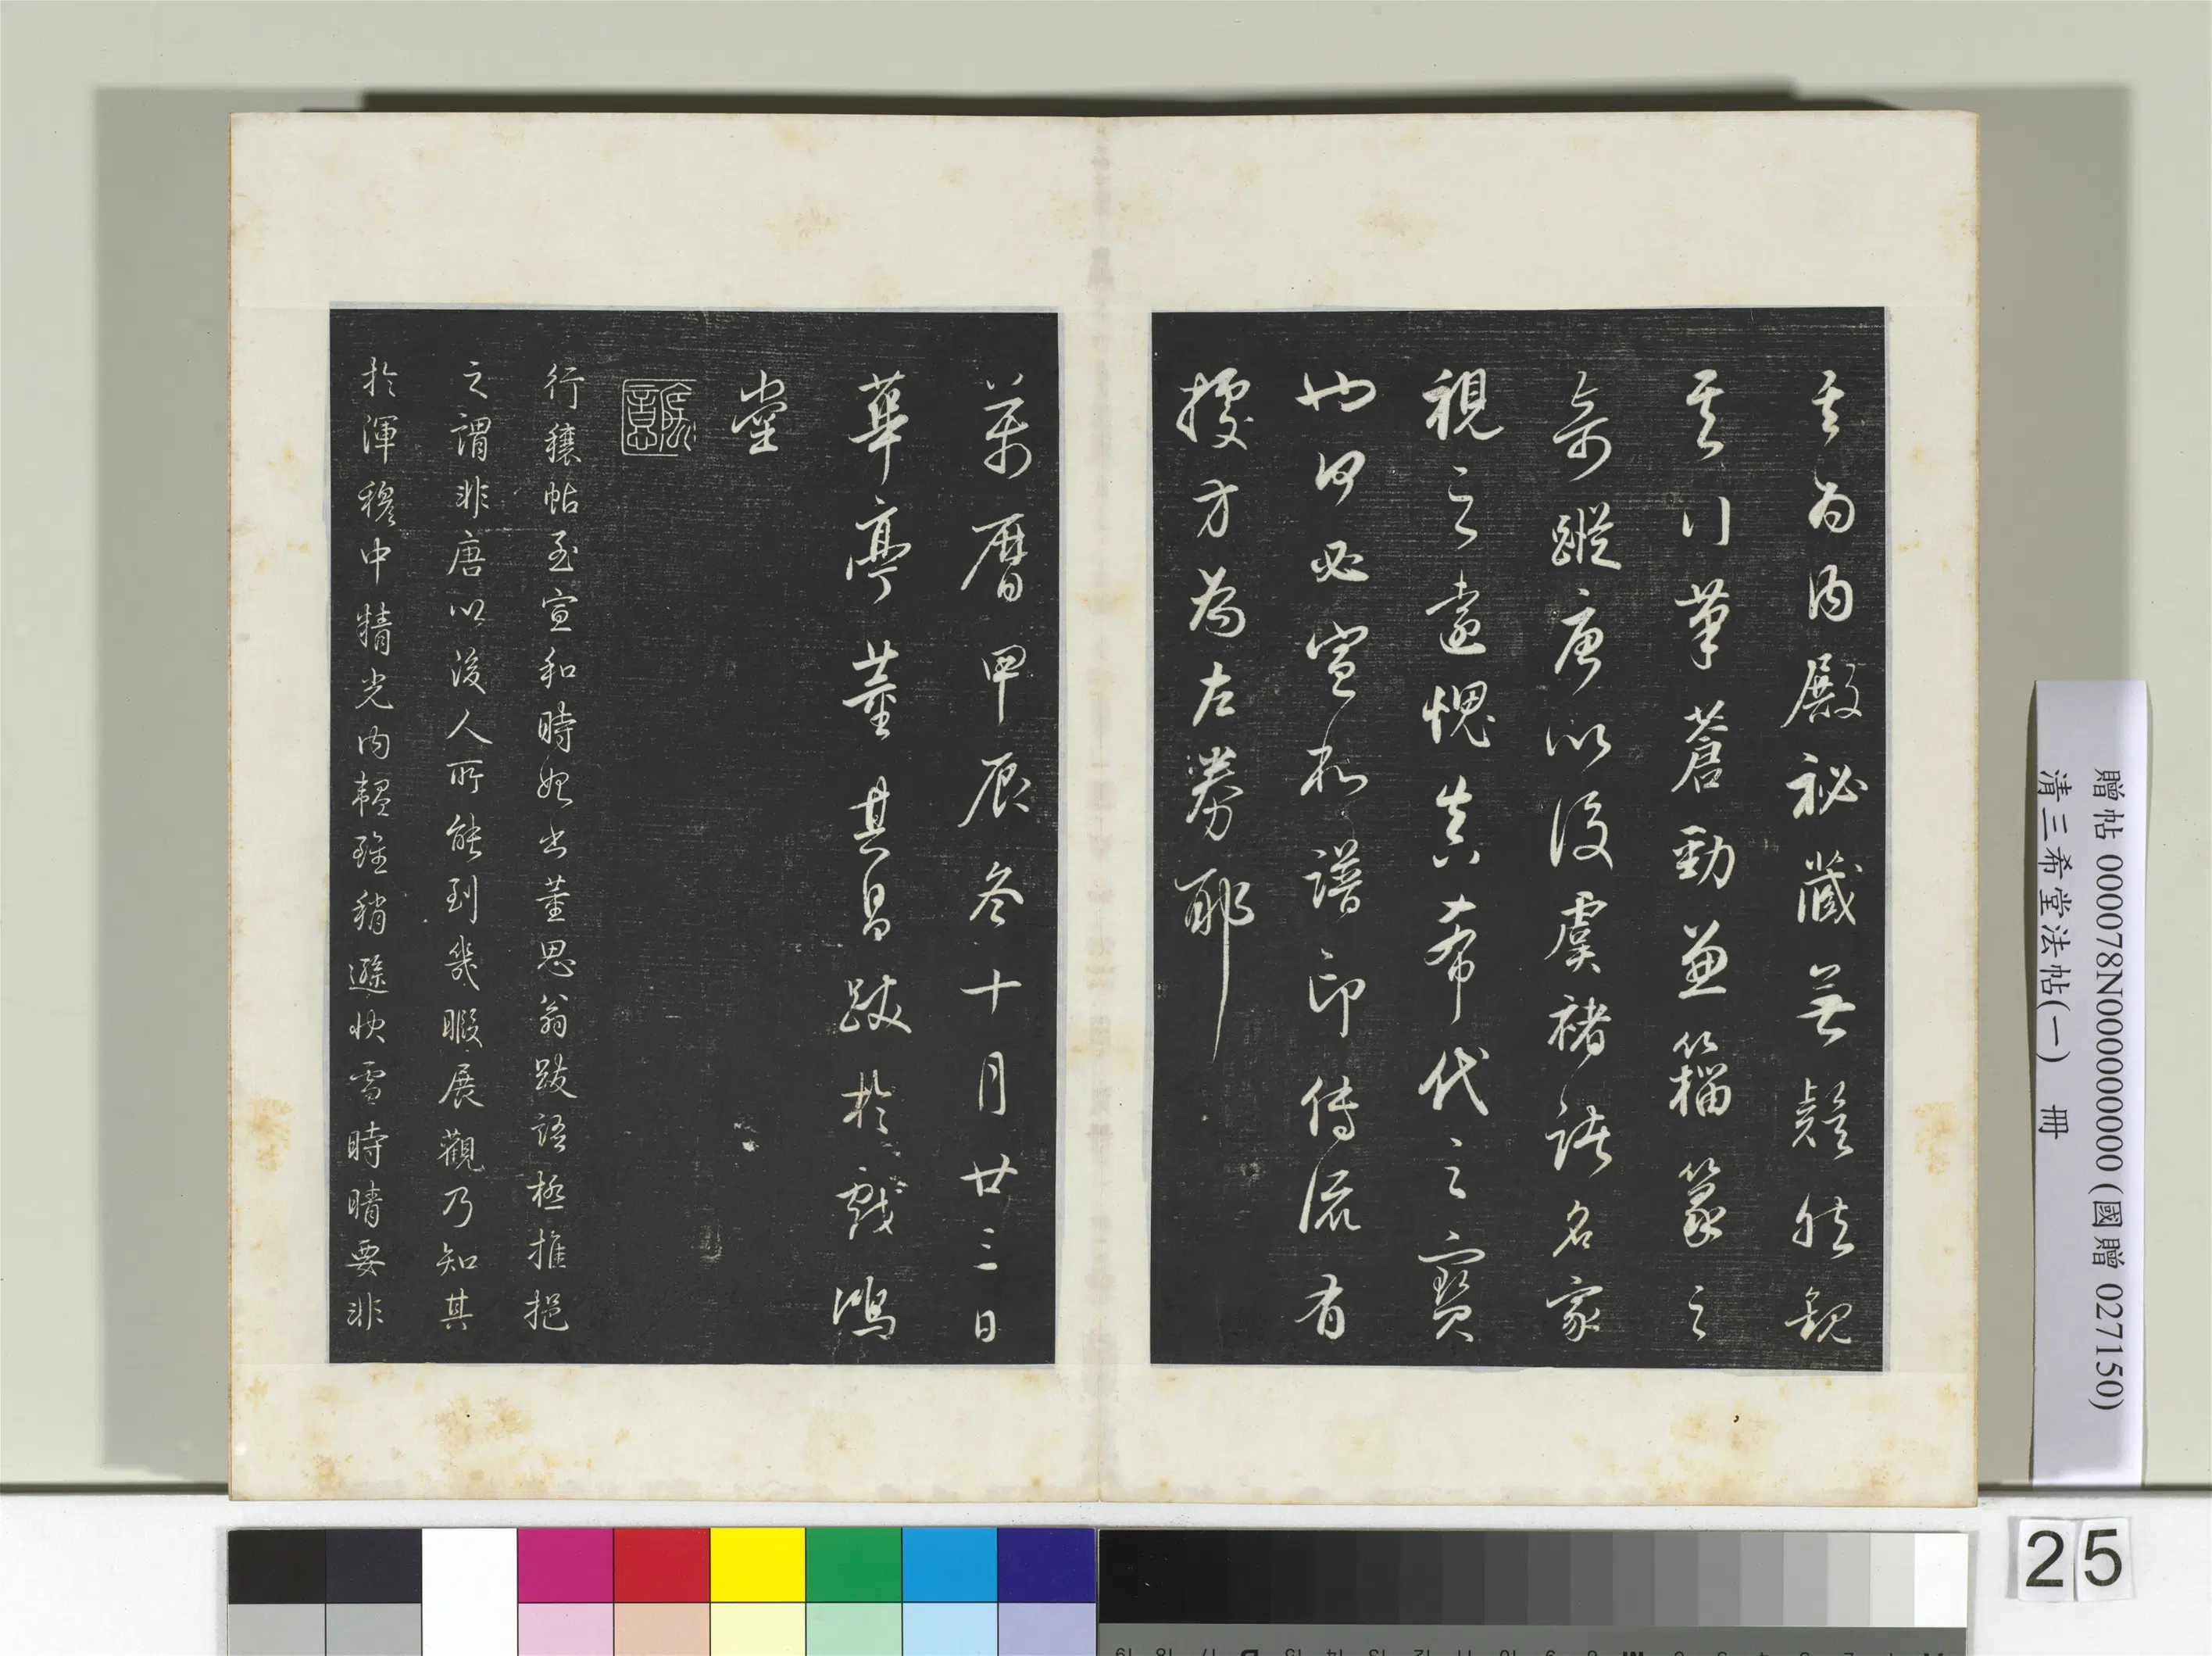 其為內殿祕藏無疑然觀
其行筆蒼勁兼籀篆之
奇蹤唐以後虞褚諸名家
視之遠愧真希代之寶
也何必宣和譜印傳流有
據方為左券耶
萬曆甲辰冬十月廿三日
華亭董其昌跋於戲鴻
堂
行穰帖至宣和時始出董思翁跋語極推挹
之謂非唐以後人所能到幾暇展觀乃知其
於渾穆中精光內韞雖稍遜快雪時晴要非
贈帖 000078N000000000 (國贈 027150)
清三希堂法帖(一) 冊
25